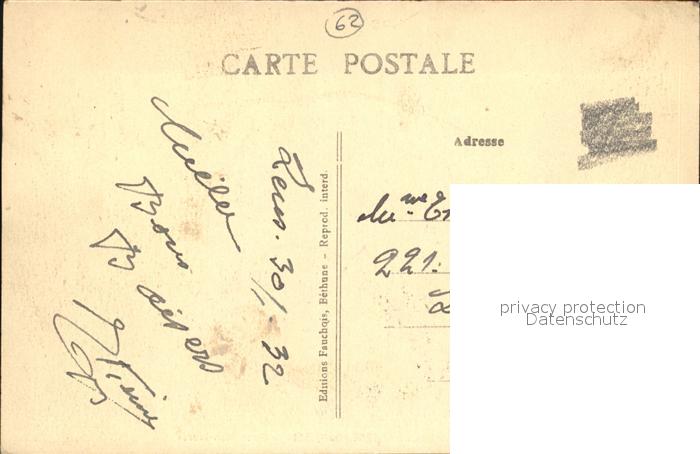 62
CARTE POSTALE
Adresse
Lens. 30/1-32
Bons
Baisers
Editions Fauchois, Béthune - Reprod. interd.
Mme
221.
privacy protection
Datenschutz